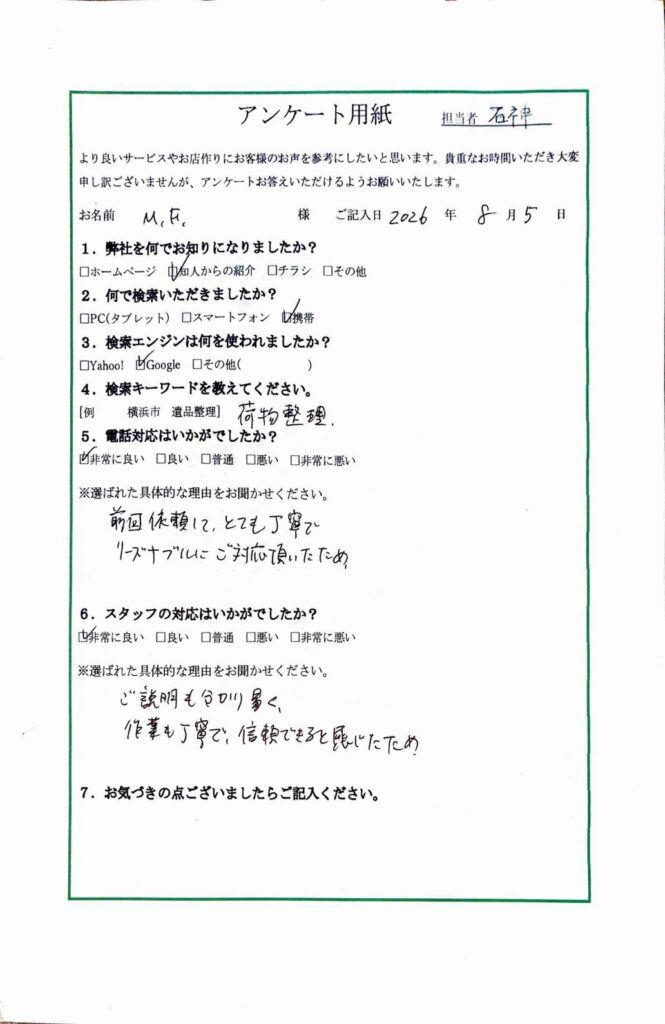 アンケート用紙
担当者 石神
より良いサービスやお店作りにお客様のお声を参考にしたいと思います。貴重なお時間いただき大変
申し訳ございませんが、アンケートお答えいただけるようお願いいたします。
お名前 M.F. 様 ご記入日 2026 年 8 月 5 日
1．弊社を何でお知りになりましたか？
□ホームページ ☑知人からの紹介 □チラシ □その他
2．何で検索いただきましたか？
□PC(タブレット) □スマートフォン ☑携帯
3．検索エンジンは何を使われましたか？
□Yahoo! ☑Google □その他( )
4．検索キーワードを教えてください。
[例 横浜市 遺品整理] 荷物整理.
5．電話対応はいかがでしたか？
☑非常に良い □良い □普通 □悪い □非常に悪い
※選ばれた具体的な理由をお聞かせください。
前回依頼して、とても丁寧で
リーズナブルにご対応頂いたため
6．スタッフの対応はいかがでしたか？
☑非常に良い □良い □普通 □悪い □非常に悪い
※選ばれた具体的な理由をお聞かせください。
ご説明も分かり易く、
作業も丁寧で、信頼できると感じたため
7．お気づきの点ございましたらご記入ください。